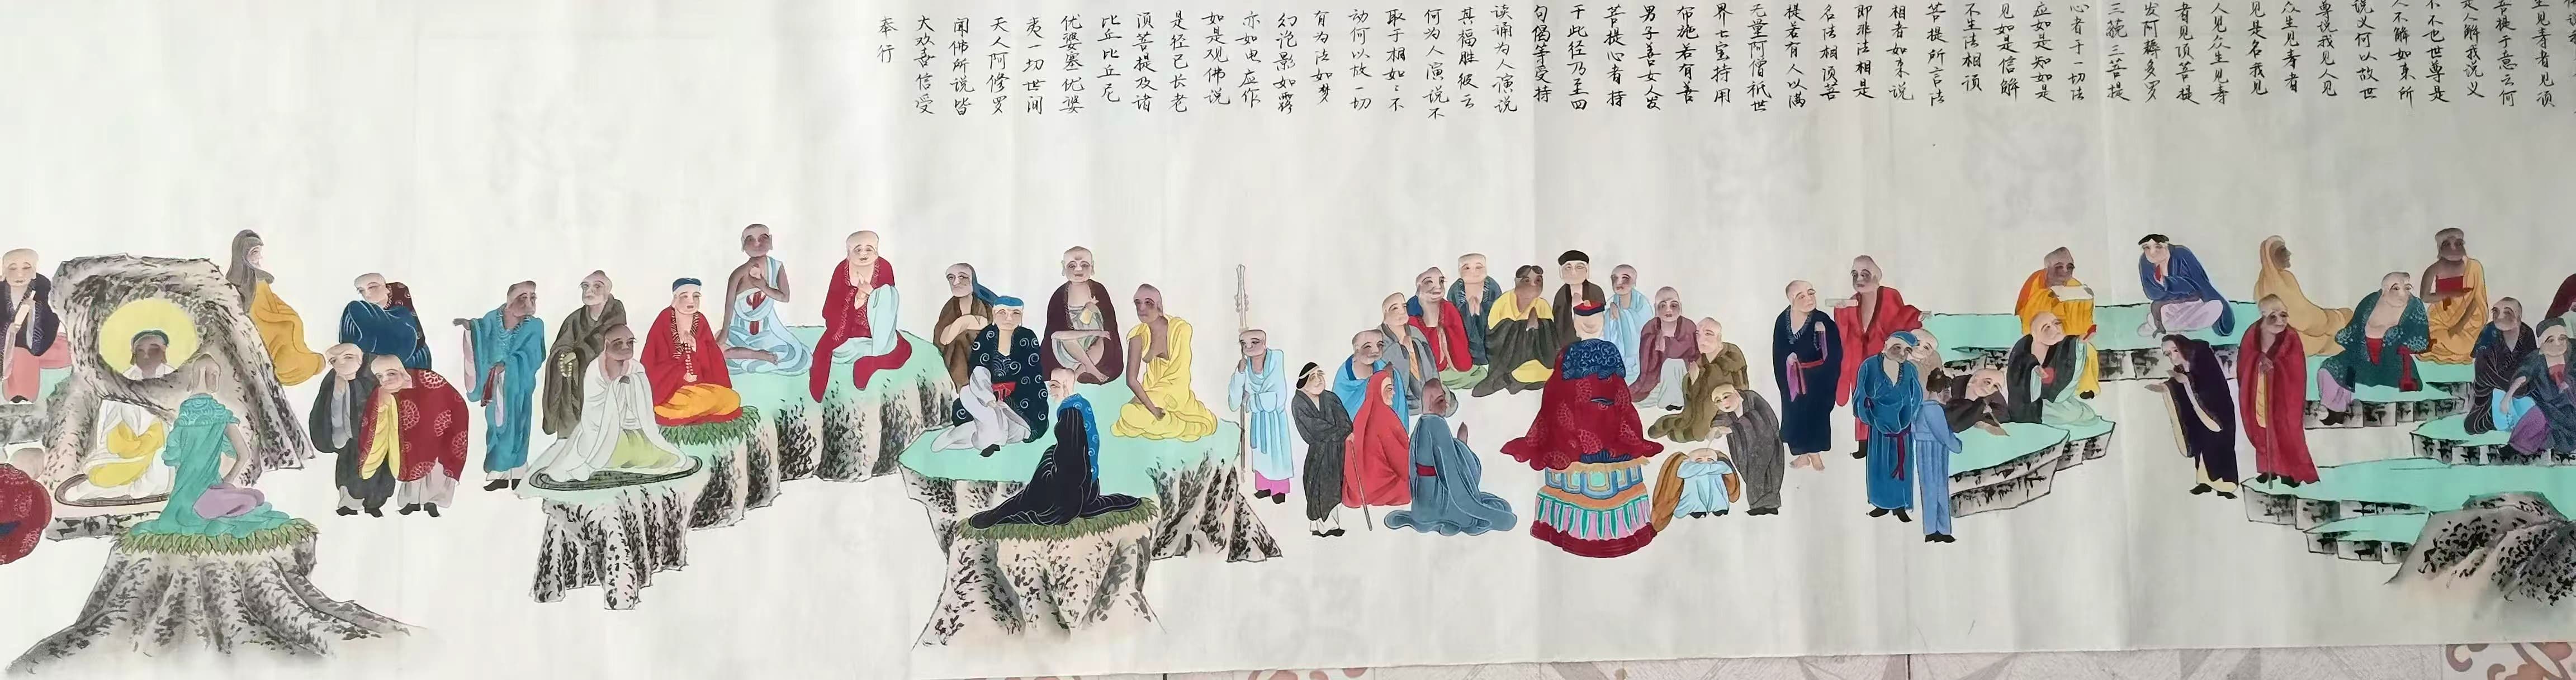 生见寿者见须
菩提于意云何
是人解我说义
不不也世尊是
人不解如来所
说义何以故世
尊说我见人见
众生见寿者
见是名我见
人见众生见寿
者见须菩提
发阿耨多罗
三藐三菩提
心者于一切法
应如是知如是
见如是信解
不生法相须
菩提所言法
相者如来说
即非法相是
名法相须菩
提若有人以满
无量阿僧祇世
界七宝持用
布施若有善
男子善女人发
菩提心者持
于此径乃至四
句偈等受持
读诵为人演说
其福胜彼云
何为人演说不
取于相如〻不
动何以故一切
有为法如梦
幻泡影如露
亦如电应作
如是观佛说
是径已长老
须菩提及诸
比丘比丘尼
优婆塞优婆
夷一切世间
天人阿修罗
闻佛所说皆
大欢喜信受
奉行